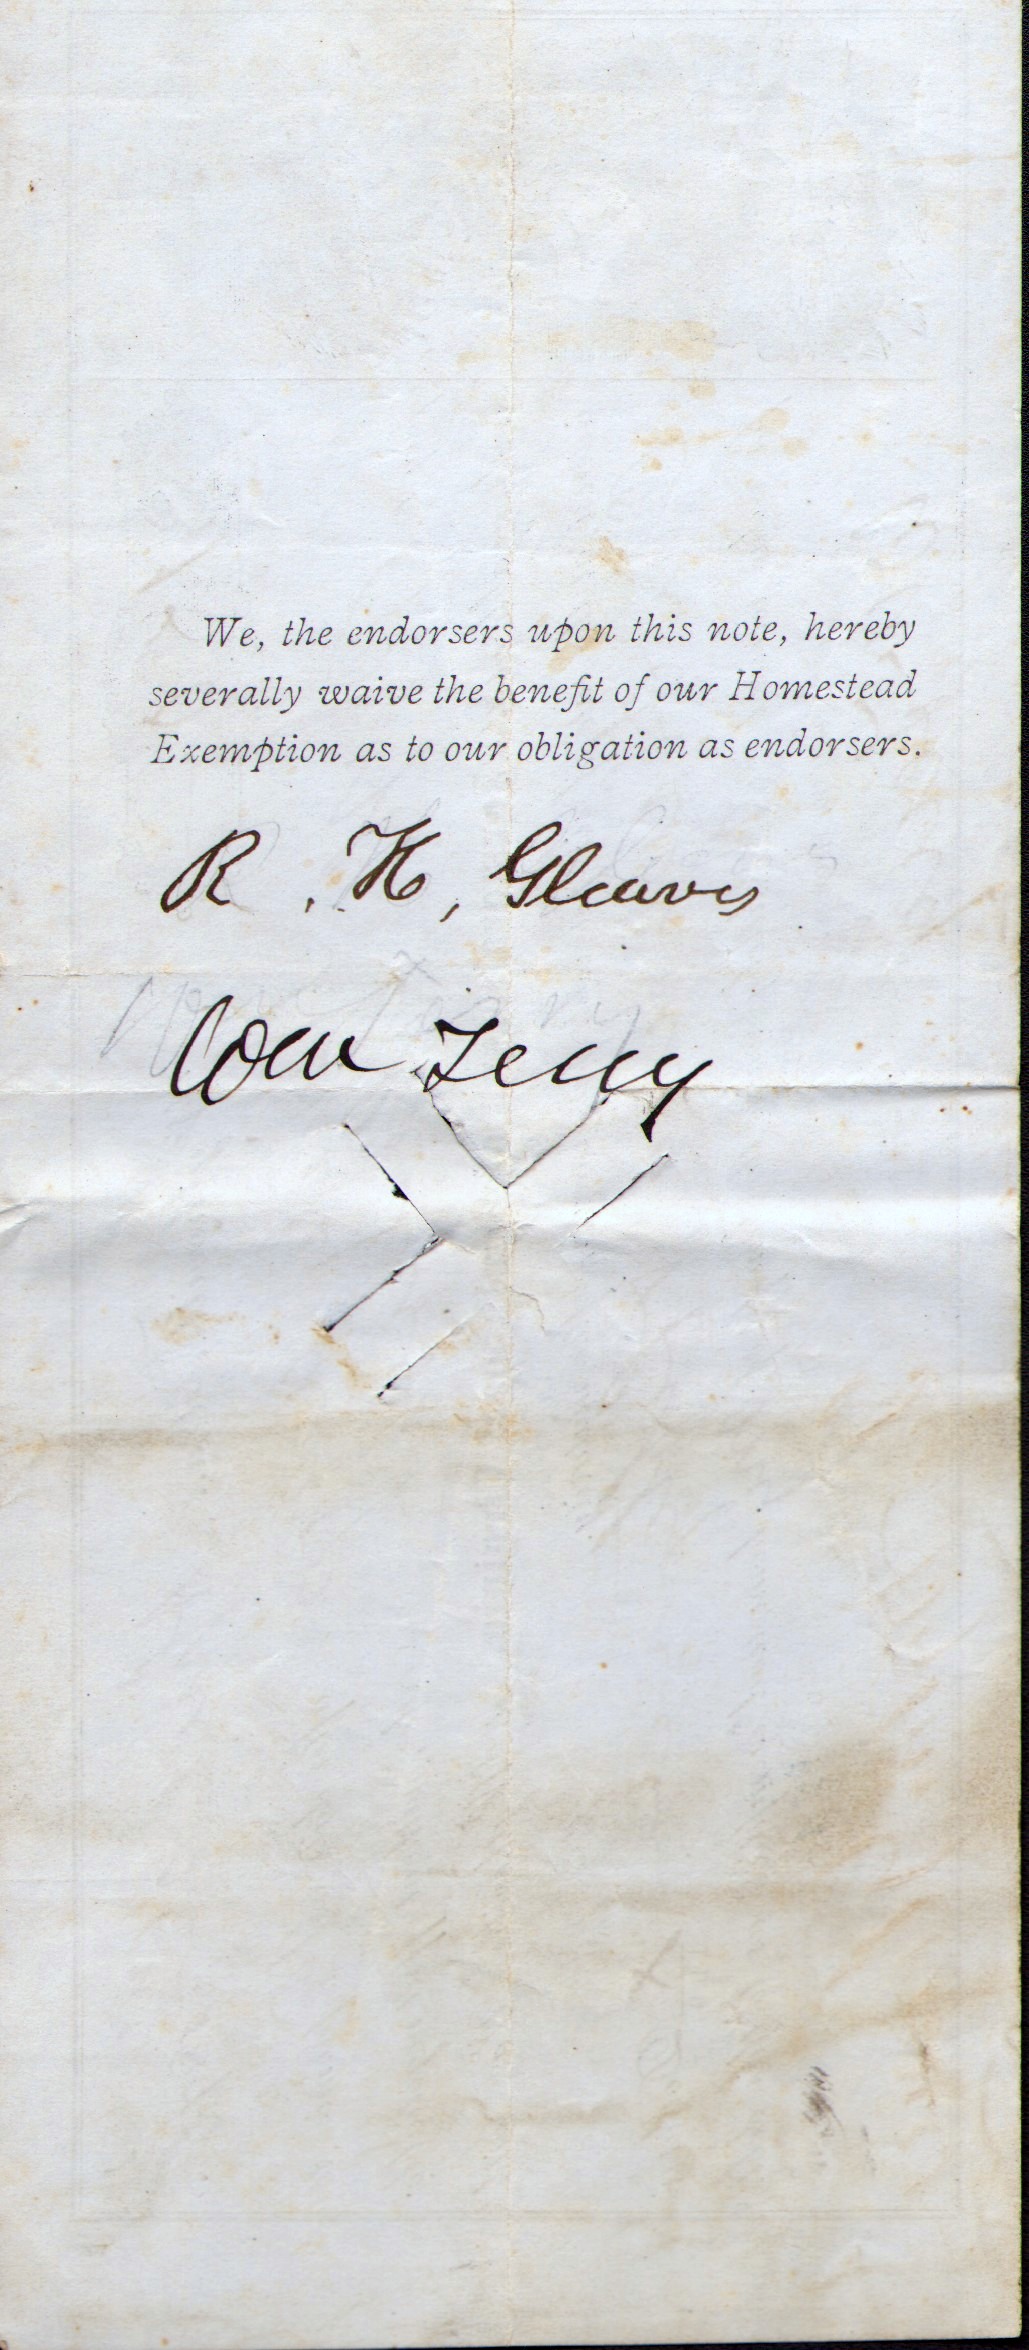 We, the endorsers upon this note, hereby
severally waive the benefit of our Homestead
Exemption as to our obligation as endorsers.
R. H, Gleaves
Wm Terry